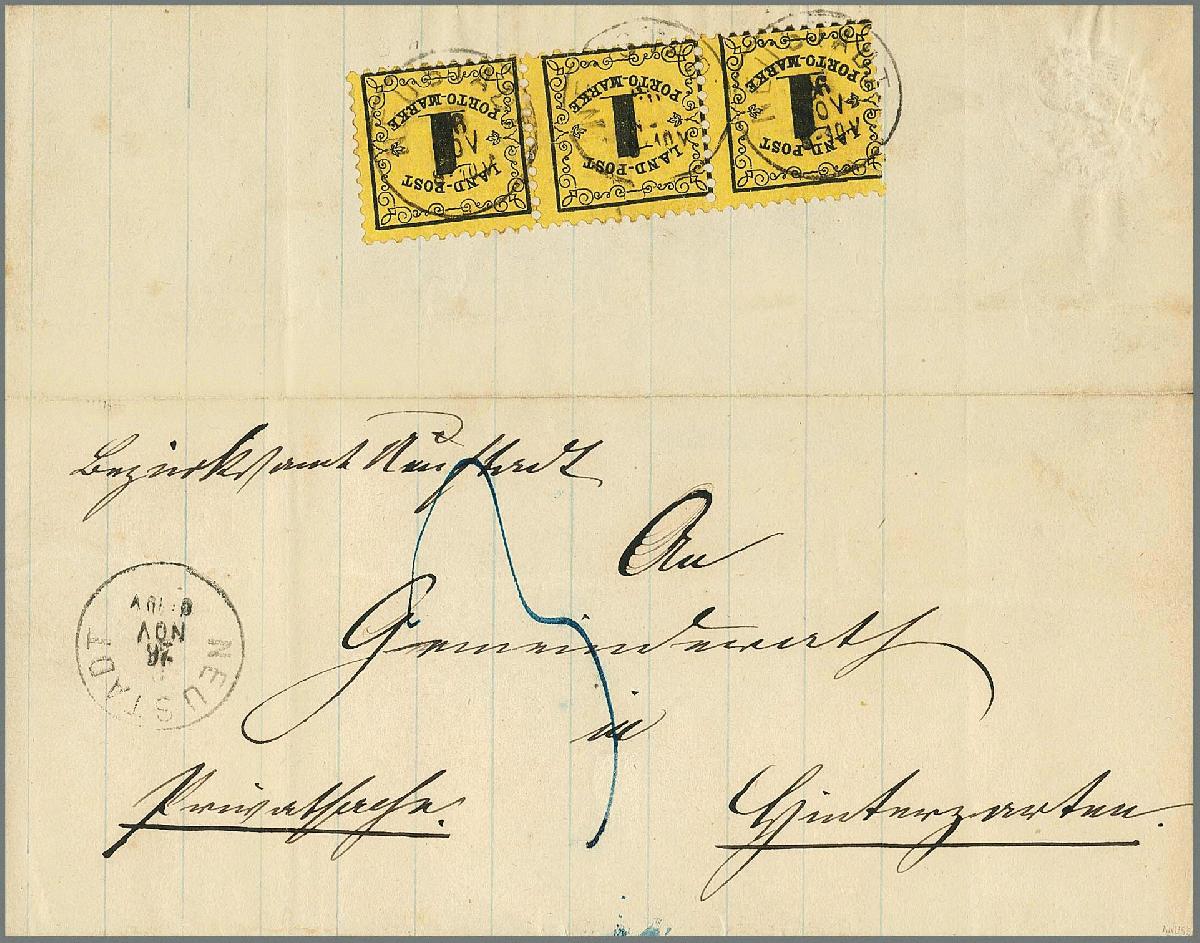 LAND-POST
1
PORTO-MARKE
LAND-POST
1
PORTO-MARKE
LAND-POST
1
PORTO-MARKE
Bezirksamt Neustadt
An
Gemeinderath
in
Hinterzarten.
Privatsache.
NEUSTADT
NOV